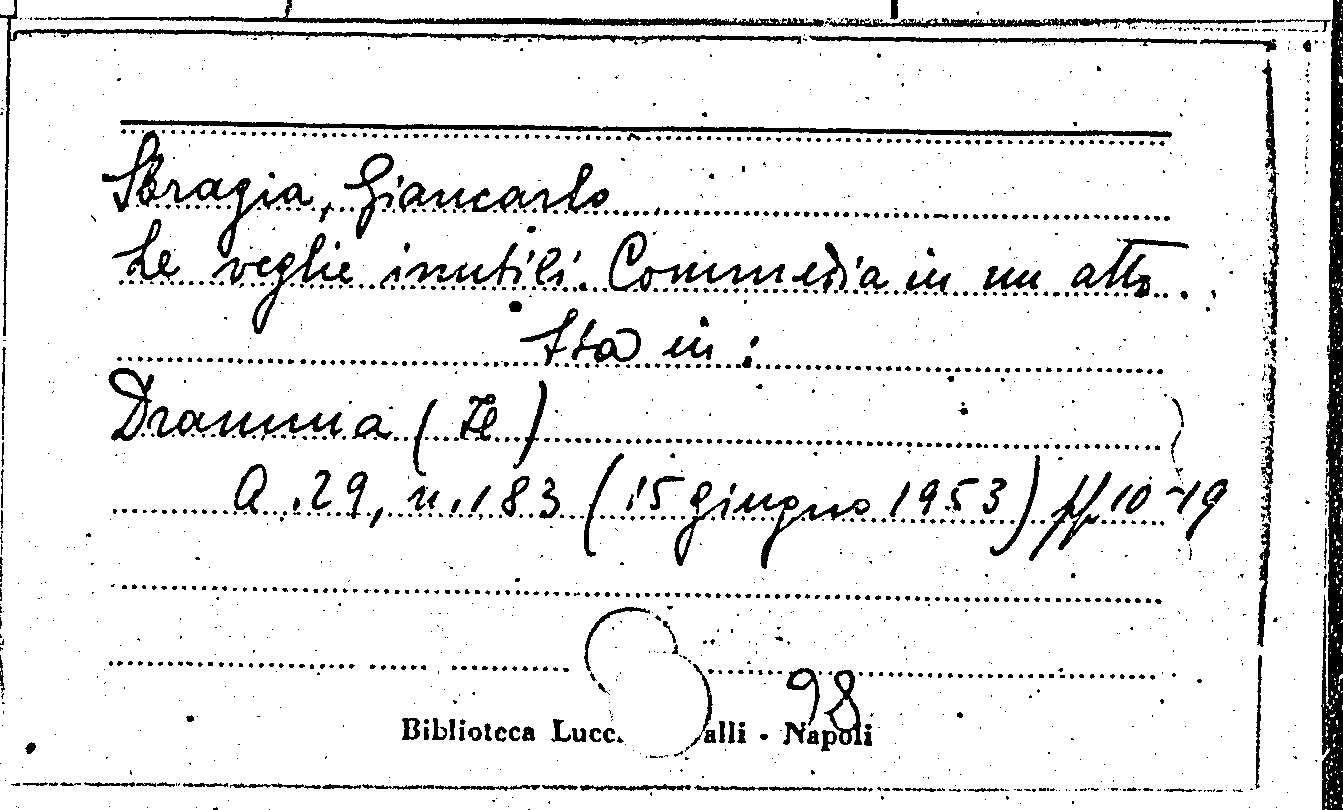 Sbragia, Giancarlo
Le veglie inutili. Commedia in un atto.
Sta in:
Dramma (Il)
A. 29, n. 183 (15 giugno 1953) pp. 10-19
98
Biblioteca Lucc alli - Napoli